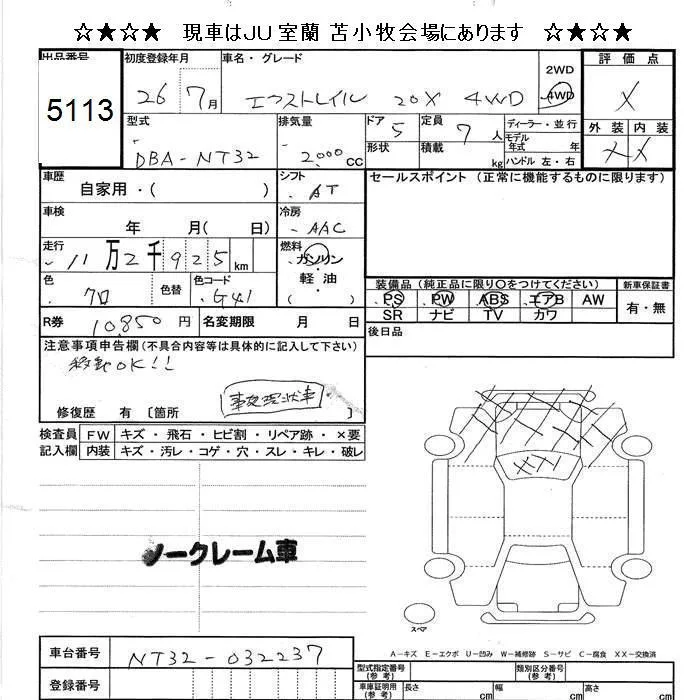 ☆★☆★ 現車はJU室蘭 苫小牧会場にあります ☆★☆★
出品番号 初度登録年月 車名・グレード 2WD 評価点
5113 26 7月 エクストレイル 20X 4WD 4WD X
型式 排気量 ドア 5 定員 7人 ディーラー・並行 外装 内装
DBA-NT32 2,000cc 形状 積載 kg モデル年式 年 X X
ハンドル 左・右
車歴 自家用・( ) シフト AT セールスポイント (正常に機能するものに限ります)
車検 年 月( 日) 冷房 AAC
走行 11万2千925km 燃料 ガソリン・軽油
色 クロ 色替 色コード G41 装備品 (純正品に限り○をつけてください) 新車保証書
PS PW ABS エアB AW 有・無
SR ナビ TV カワ
R券 10850円 名変期限 月 日 後日品
注意事項申告欄(不具合内容等は具体的に記入して下さい)
移動OK!!
事故現状車
修復歴 有 〔箇所 〕
検査員 FW キズ・飛石・ヒビ割・リペア跡・×要
記入欄 内装 キズ・汚レ・コゲ・穴・スレ・キレ・破レ
ノークレーム車
スペア
A-キズ E-エクボ U-凹み W-補修跡 S-サビ C-腐食 XX-交換済
車台番号 NT32-032237 型式指定番号(参考) 類別区分番号(参考)
登録番号 車庫証明用(参考) 長さ cm 幅 cm 高さ cm